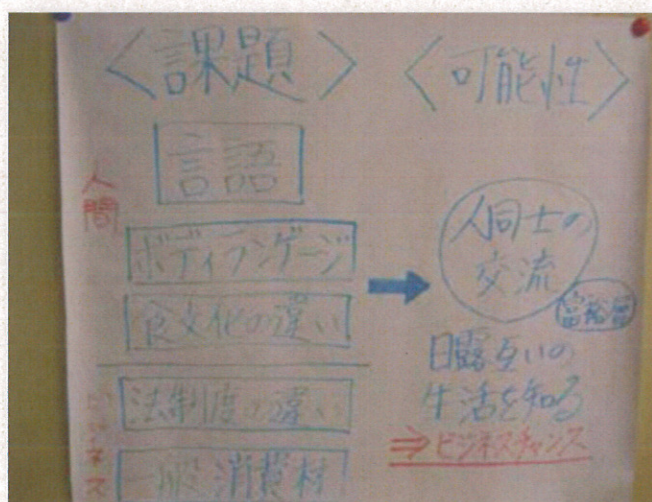 <課題>
人間
言語
ボディランゲージ
食文化の違い
ビジネス
法制度の違い
一般消費材
<可能性>
人同士の
交流
富裕層
日露互いの
生活を知る
⇒ビジネスチャンス